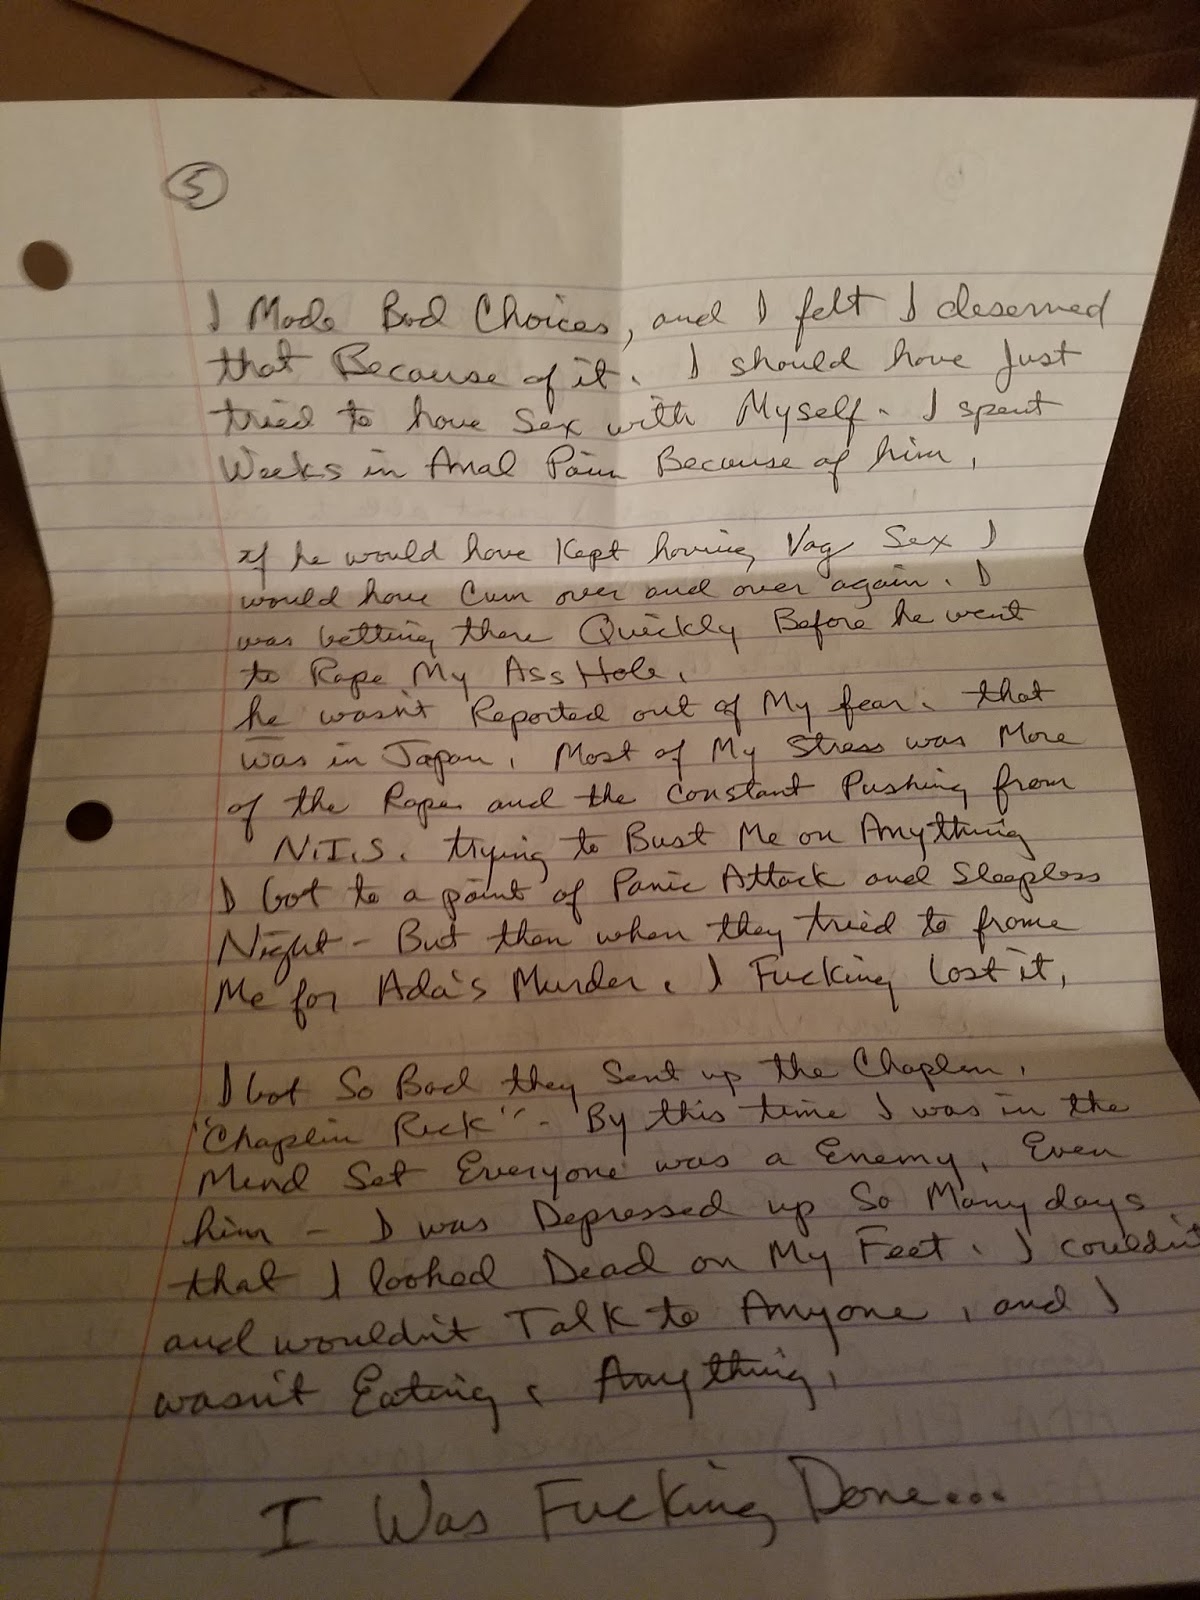 5
I Made Bad Choices, and I felt I deserved
that Because of it. I should have Just
tried to have Sex with Myself. I spent
Weeks in Anal Pain Because of him.
if he would have Kept having Vag Sex I
would have Cum over and over again. I
was getting there Quickly Before he went
to Rape My Ass Hole.
he wasn't Reported out of My fear. that
was in Japan. Most of My Stress was More
of the Rape and the constant Pushing from
N.I.S. trying to Bust Me on Anything
I Got to a point of Panic Attack and Sleepless
Night - But then when they tried to frame
Me for Ada's Murder. I Fucking Lost it.
I Got So Bad they Sent up the Chaplen.
"Chaplin Rick" - By this time I was in the
Mind Set Everyone was a Enemy. Even
him - I was Depressed up So Many days
that I looked Dead on My Feet. I couldn't
and wouldn't Talk to Anyone, and I
wasn't Eating. Anything.
I Was Fucking Done...